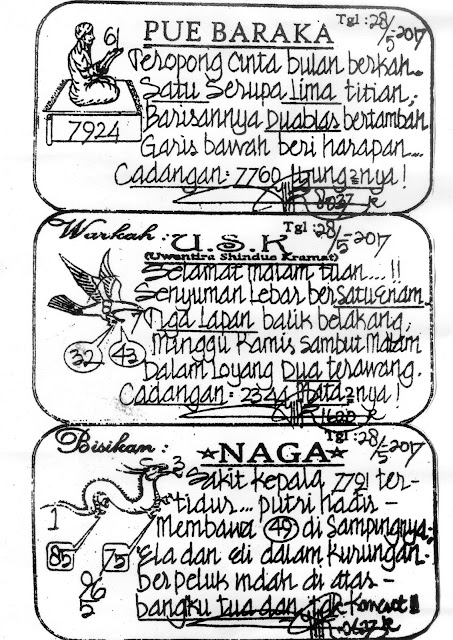 PUE BARAKA
Tgl : 28/5-2017
61
7924
Teropong cinta bulan berkah..
Satu Serupa lima titian,
Barisannya Duablas bertambah
Garis bawah beri harapan...
Cadangan: 7760 Ujung2nya!
8037
Warkah:
U.S.K
Tgl : 28/5-2017
(Uwentira Shinduo Kramat)
Selamat malam tuan....!!
Senyuman Lebar ber Satu Enam.
Tiga Lapan balik belakang,
Minggu Kamis sambut Malam
Dalam Loyang Dua terawang.
Cadangan: 2344 Mata2nya!
32
43
1680
Bisikan:
NAGA
Tgl : 28/5-2017
Sakit kepala 7791 ter-
tidur... putri hadir -
Membawa 49 di Sampingnya;
Ela dan eli dalam kurungan.
berpeluk indah di atas -
bangku tua dan tak
0637
3
1
85
75